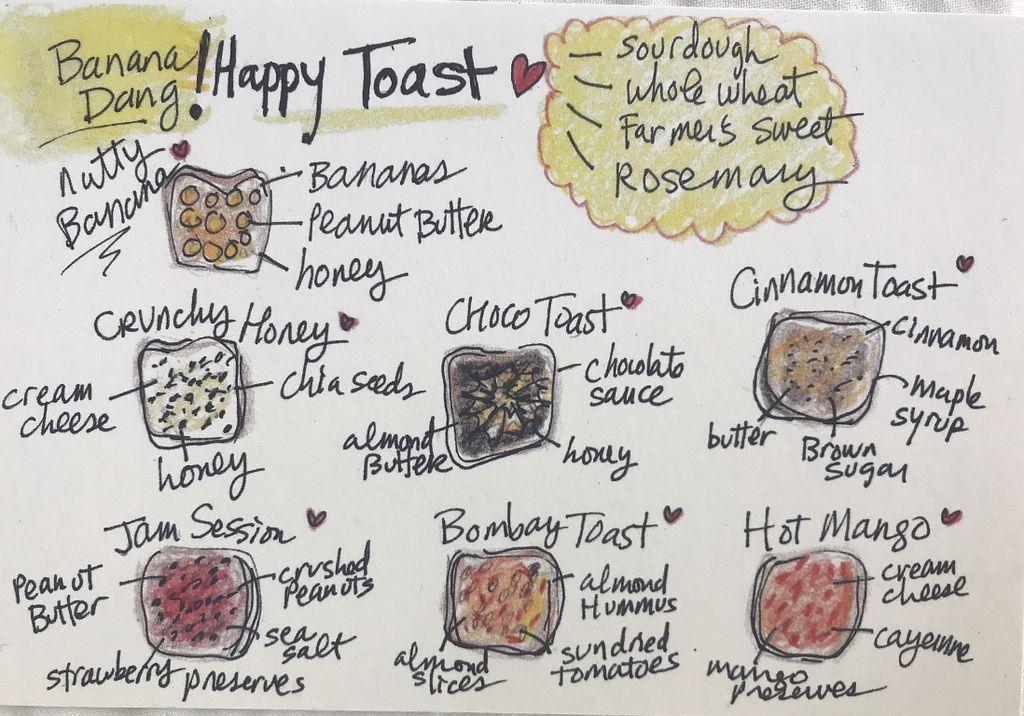 Banana
Dang!
Happy Toast
sourdough
whole wheat
Farmer's sweet
Rosemary
Nutty
Banana
Bananas
Peanut Butter
honey
Crunchy Honey
cream
cheese
chia seeds
honey
CHOCO TOAST
chocolate
sauce
almond
Butter
honey
Cinnamon Toast
cinnamon
maple
syrup
butter
Brown
sugar
Jam Session
Peanut
Butter
crushed
Peanuts
sea
salt
strawberry preserves
Bombay Toast
almond
Hummus
sundried
tomatoes
almond
slices
Hot Mango
cream
cheese
cayenne
mango
preserves